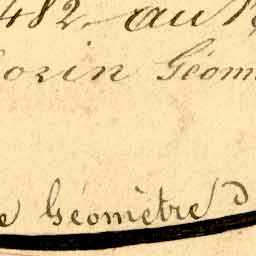 482 au
orin Géom
e Géomètre d